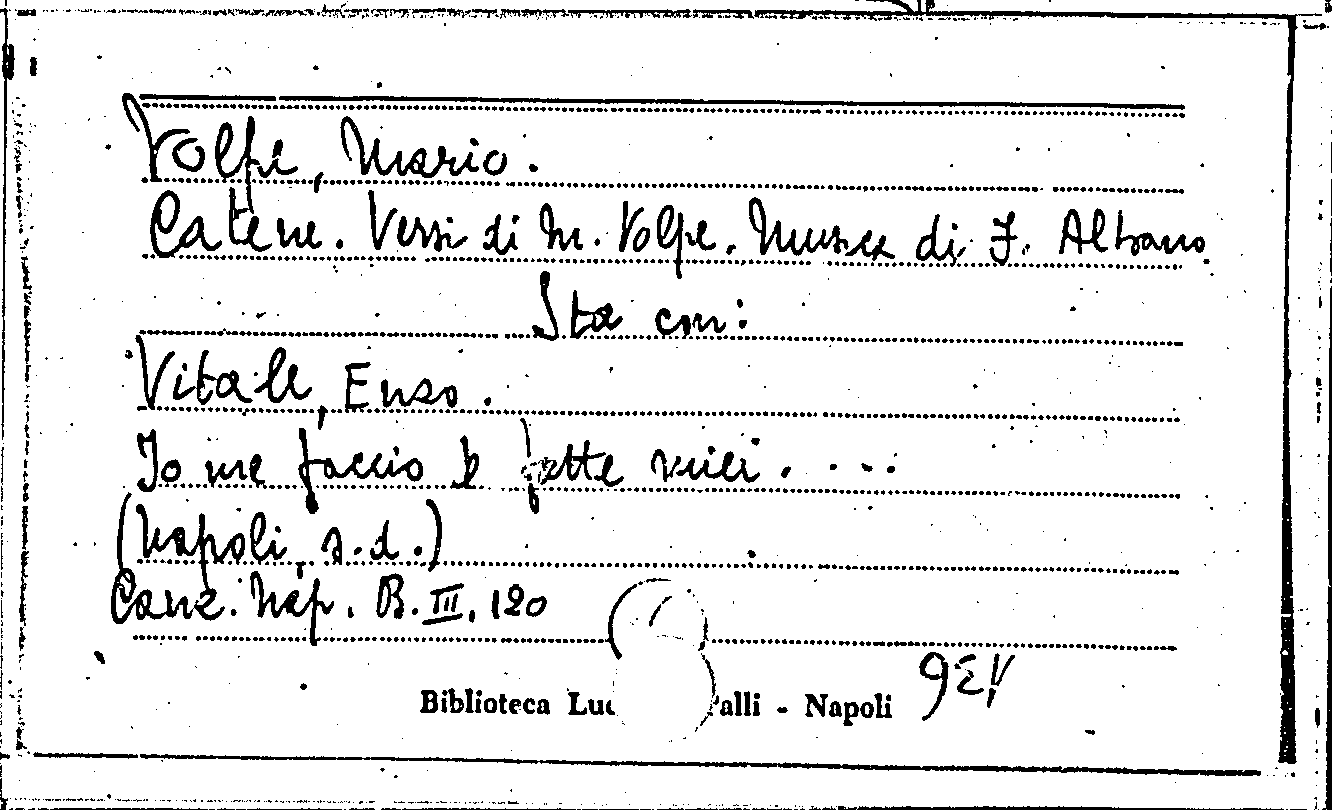 Volpe, Mario.
Catene. Versi di M. Volpe. Musica di F. Albano
Sta con:
Vitale, Enzo.
Io me faccio 'e fatte miei. ...
(Napoli, s.d.)
Canz. Nap. B. III. 120
Biblioteca Luc alli - Napoli